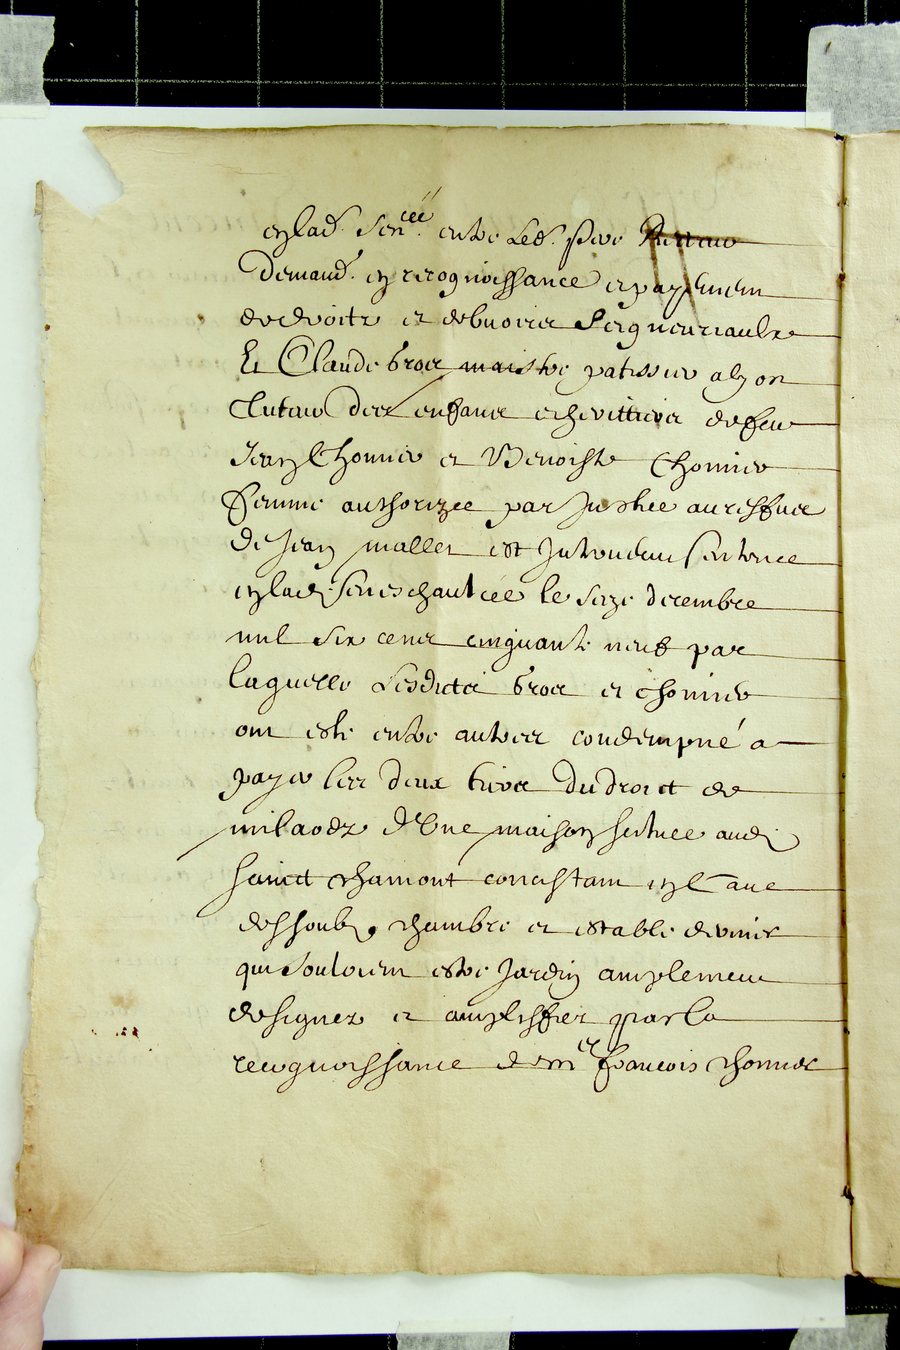 en lad. Sen.cée entre Led. sieur
Demand. en recognoissance et payement
de droitz et debvoirs Seigneuriaulx
Et Claude bros maistre patissier a lyon
tuteur des enfans et heritiers de feu
Jean Chomier et Benoiste Chomier
femme authorizee par Justice au reffus
de Jean mallet est Intervenue sentence
en lad. seneschaulcée le seize decembre
mil six cens cinquante neuf par
laquelle Lesdictz bros et chomier
ont esté entre autres condempné a
payer les deux tiers du droict de
milaodz d'Une maison scituee aud.
sainct chamont concistant en Cave
dessoubz, chambre et estable dernier
qui souloient estre Jardin amplement
designez et ampliffiez par la
recognoissance de me françois chomier